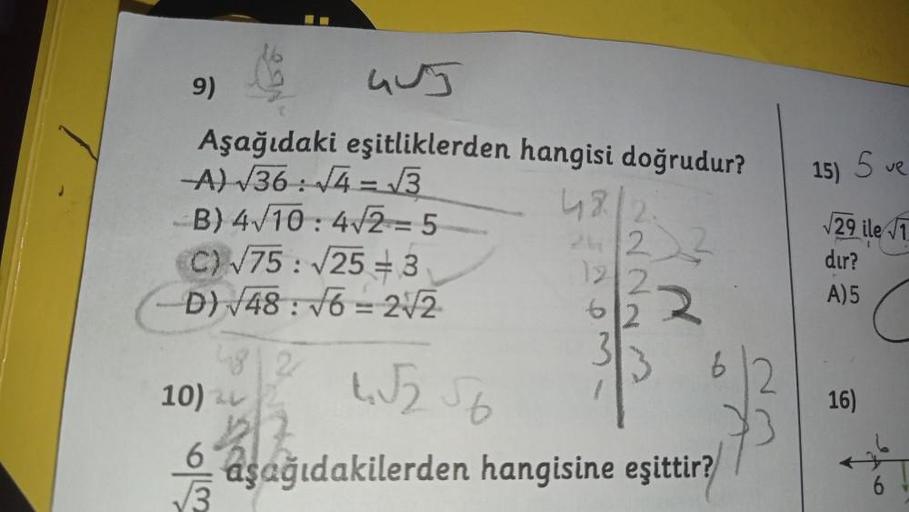 9)
4√3
Aşağıdaki eşitliklerden hangisi doğrudur?
A) √36 : √4 = √3
B) 4√10 : 4√2 = 5
C) √75 : √25 = 3
D) √48 : √6 = 2√2
48 | 2
24 | 2 2
12 | 2
6 | 2 2
3 | 3
1
6 | 2
3 | 3
1
48 | 2
10)
4√2 √6
6/√3 aşağıdakilerden hangisine eşittir?
15) 5 ve
√29 ile √1
dır?
A) 5
16)
6
6